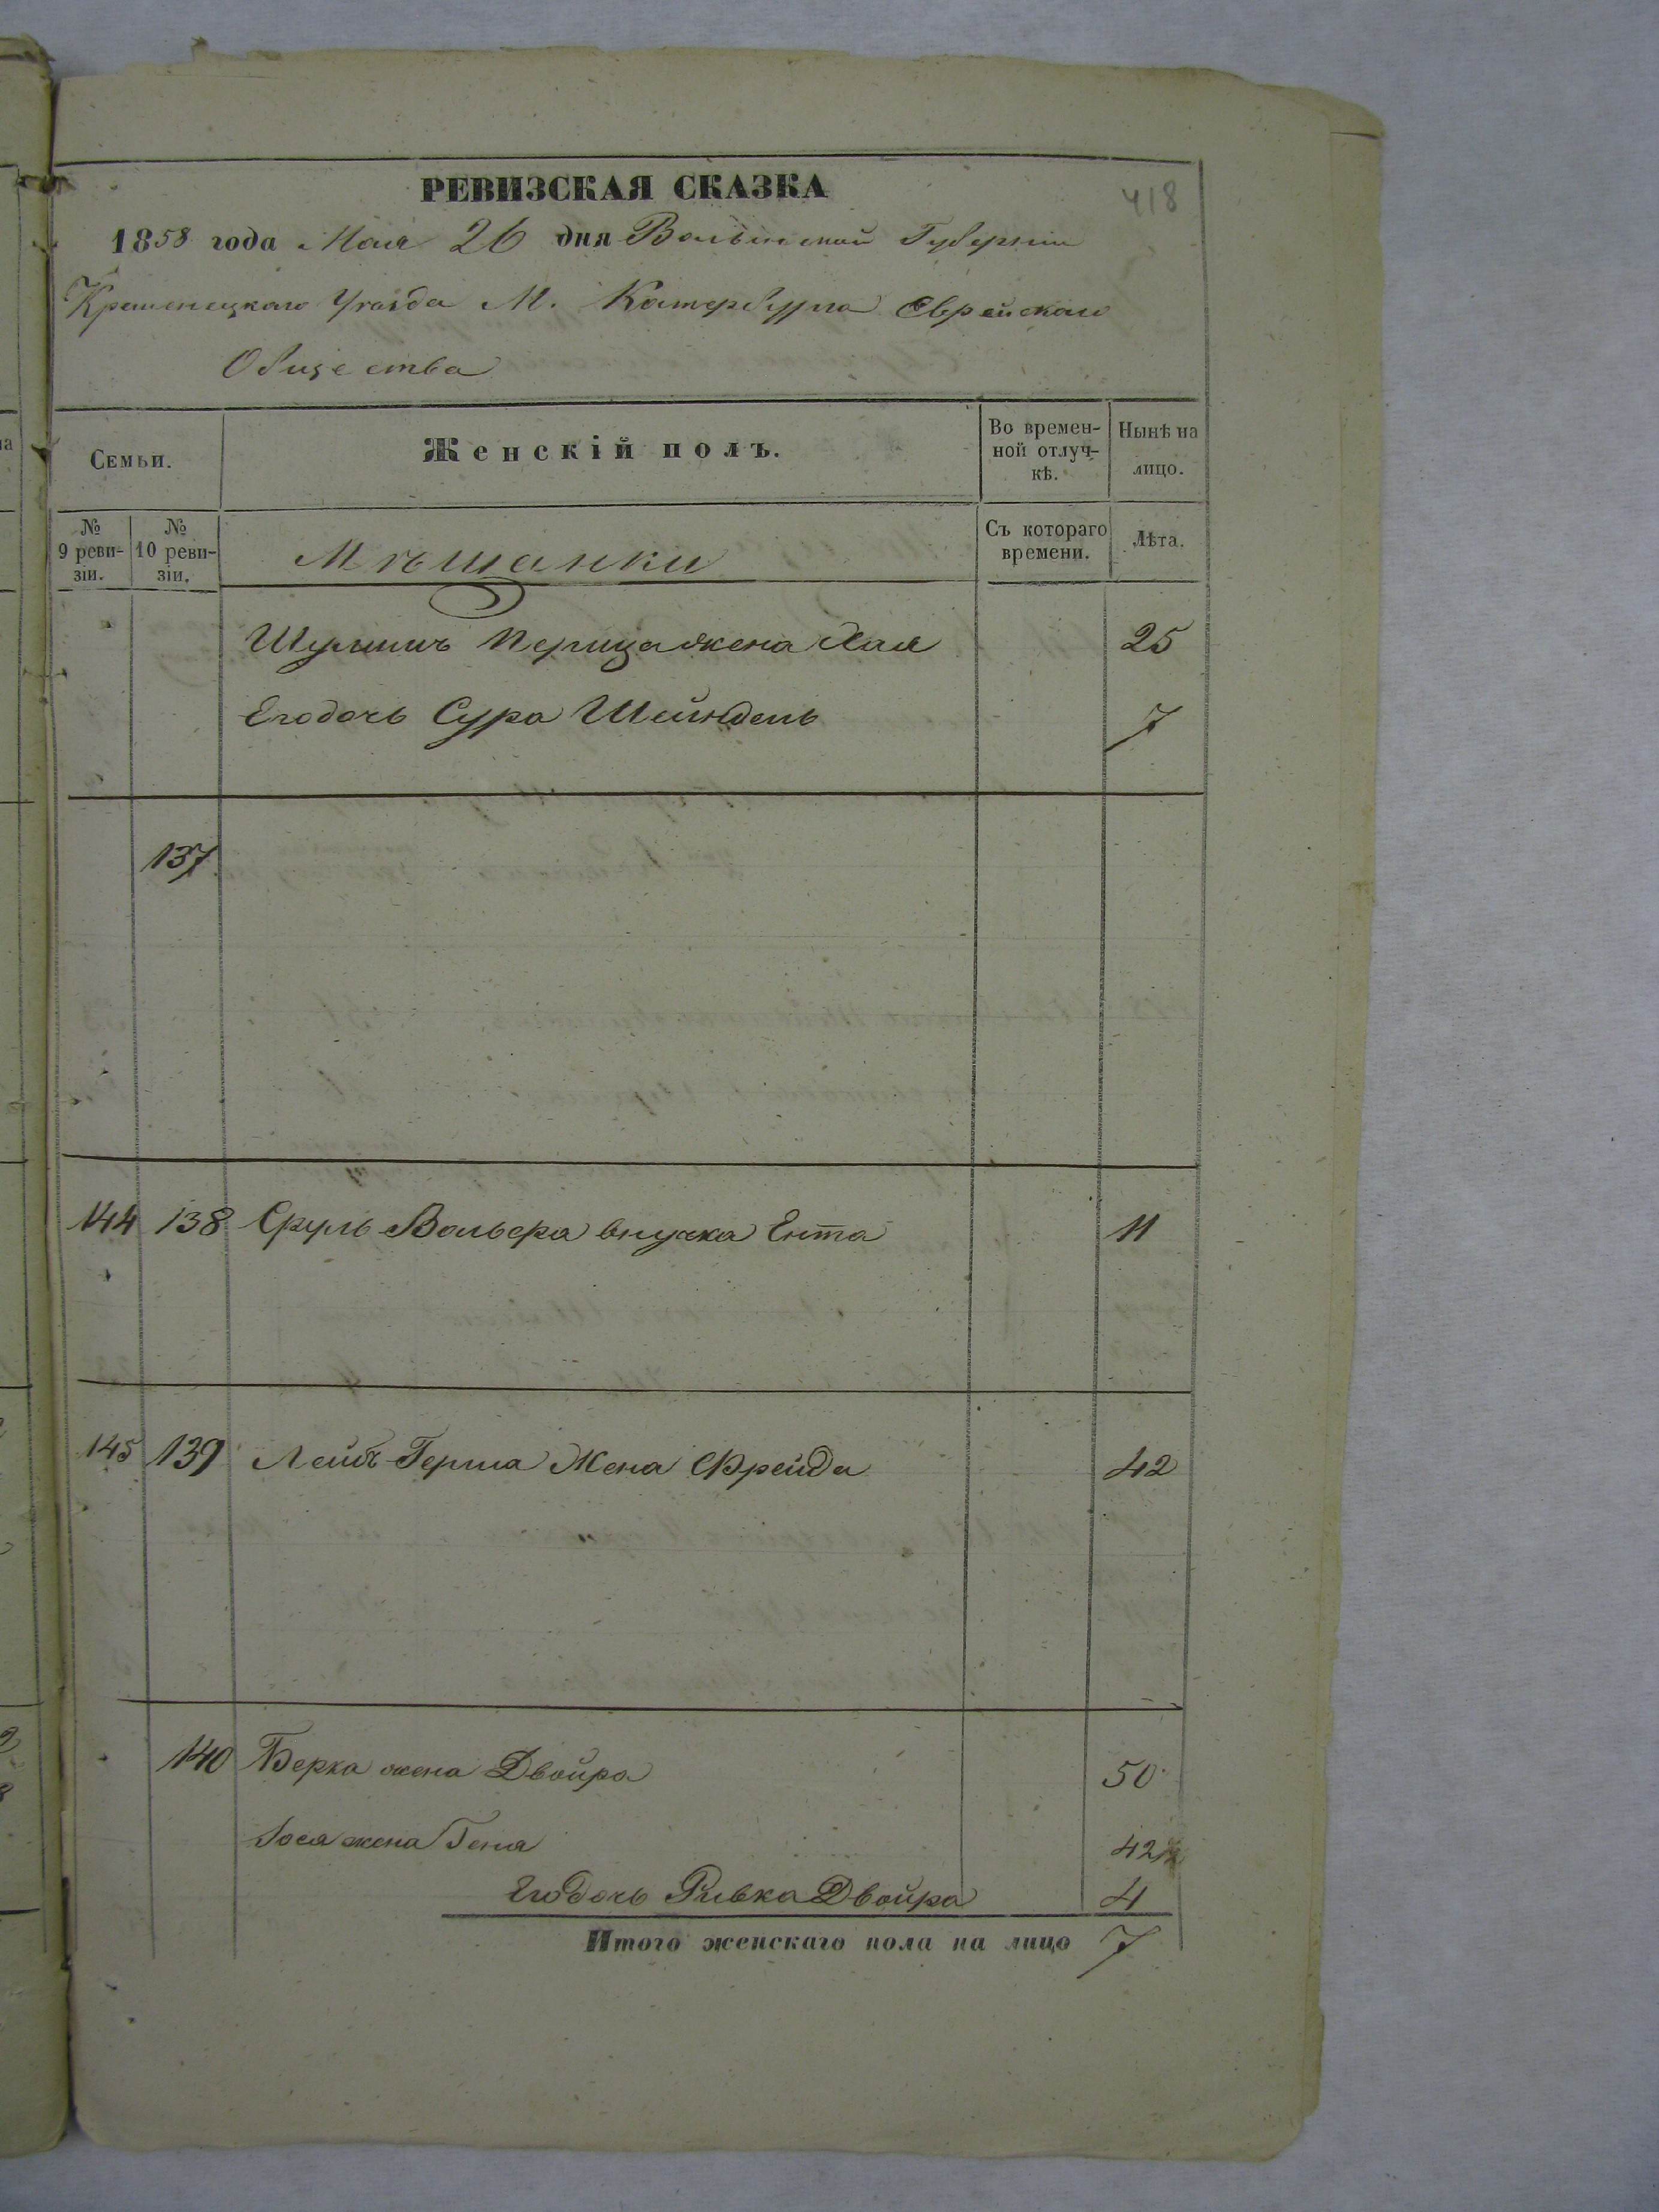 418
РЕВИЗСКАЯ СКАЗКА
1858 года Мая 26 дня Волынской Губернии
Кременецкаго Уѣзда М. Катербурга Еврейскаго
Общества
Семьи.
Женскій полъ.
Во времен-
ной отлуч-
кѣ.
Нынѣ на
лицо.
№
9 реви-
зіи.
№
10 реви-
зіи.
Мѣщанки
Съ котораго
времени.
Лѣта.
Шулимъ Перица жена Хая 25
Его дочь Сура Шейндель 7
137
144 138 Сруль Вольера внучка Ента 11
145 139 Лейбъ Герша Жена Фрейда 42
140 Берка жена Двойра 50
Іося жена Геня 42
Его дочь Ривка Двойра 4
Итого женскаго пола на лицо 7